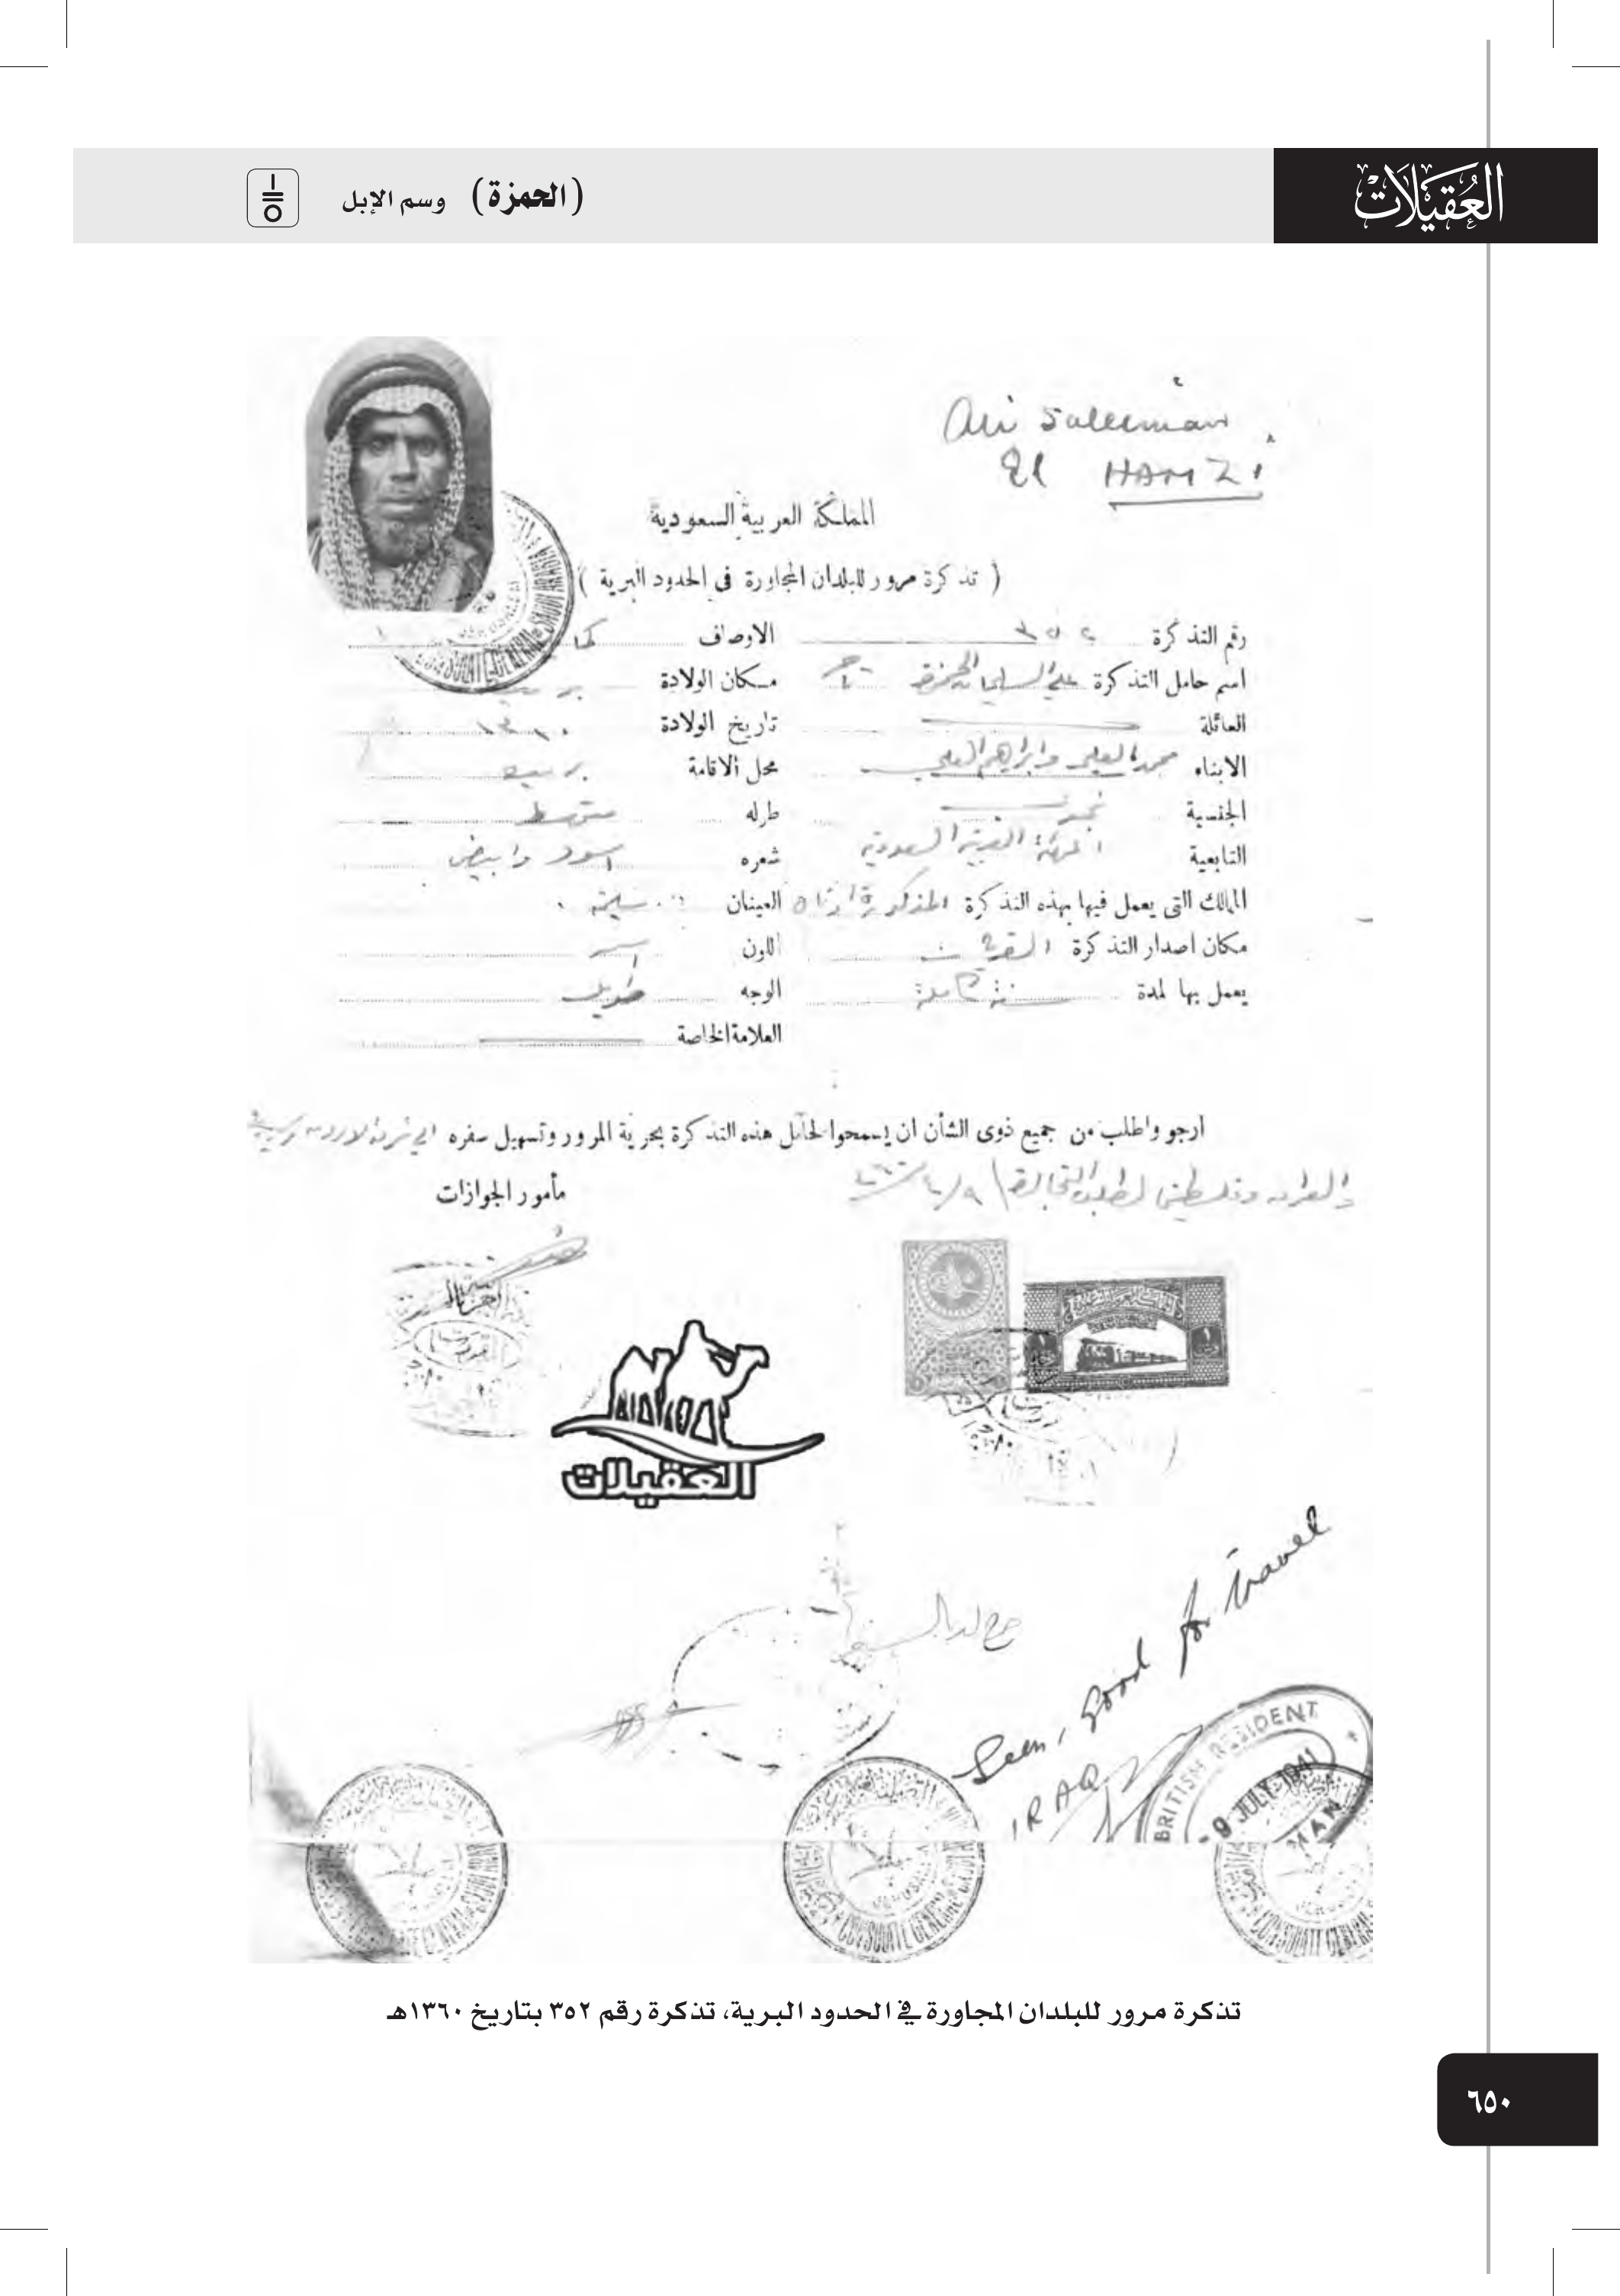 العُقَيْلَاتْ
(الحمزة) وسم الإبل
Ali Suleiman
El HAMZI
المملكة العربية السعودية
( تذكرة مرور للبلدان المجاورة فى الحدود البرية )
رقم التذكرة ٣٥٢
الاوصاف كما
اسم حامل التذكرة علي السليمان الحمزة تاجر
مكان الولادة بريده
العائلة
تاريخ الولادة ١٣١٠
الابناء محمد العلي وابراهيم العلي
محل الاقامة بريده
الجنسية نجدي
طوله متوسط
التابعية المملكة العربية السعودية
شعره اسود وابيض
المالك التى يعمل فيها بهذه التذكرة المذكورة ادناه
العينان سليمه
مكان اصدار التذكرة القريات
اللون اسمر
يعمل بها لمدة سنة كاملة
الوجه طويل
العلامة الخاصة
ارجو واطلب من جميع ذوى الشأن ان يسمحوا لحامل هذه التذكرة بحرية المرور وتسهيل سفره الى شرق الاردن
والعراق وفلسطين لطلب التجارة
مأمور الجوازات
العقيلات
Seen, Good for travel
IRAQ
BRITISH RESIDENT
9 JULY 1941
CONSULATE GENERAL
تذكرة مرور للبلدان المجاورة في الحدود البرية، تذكرة رقم ٣٥٢ بتاريخ ١٣٦٠هـ
٦٥٠